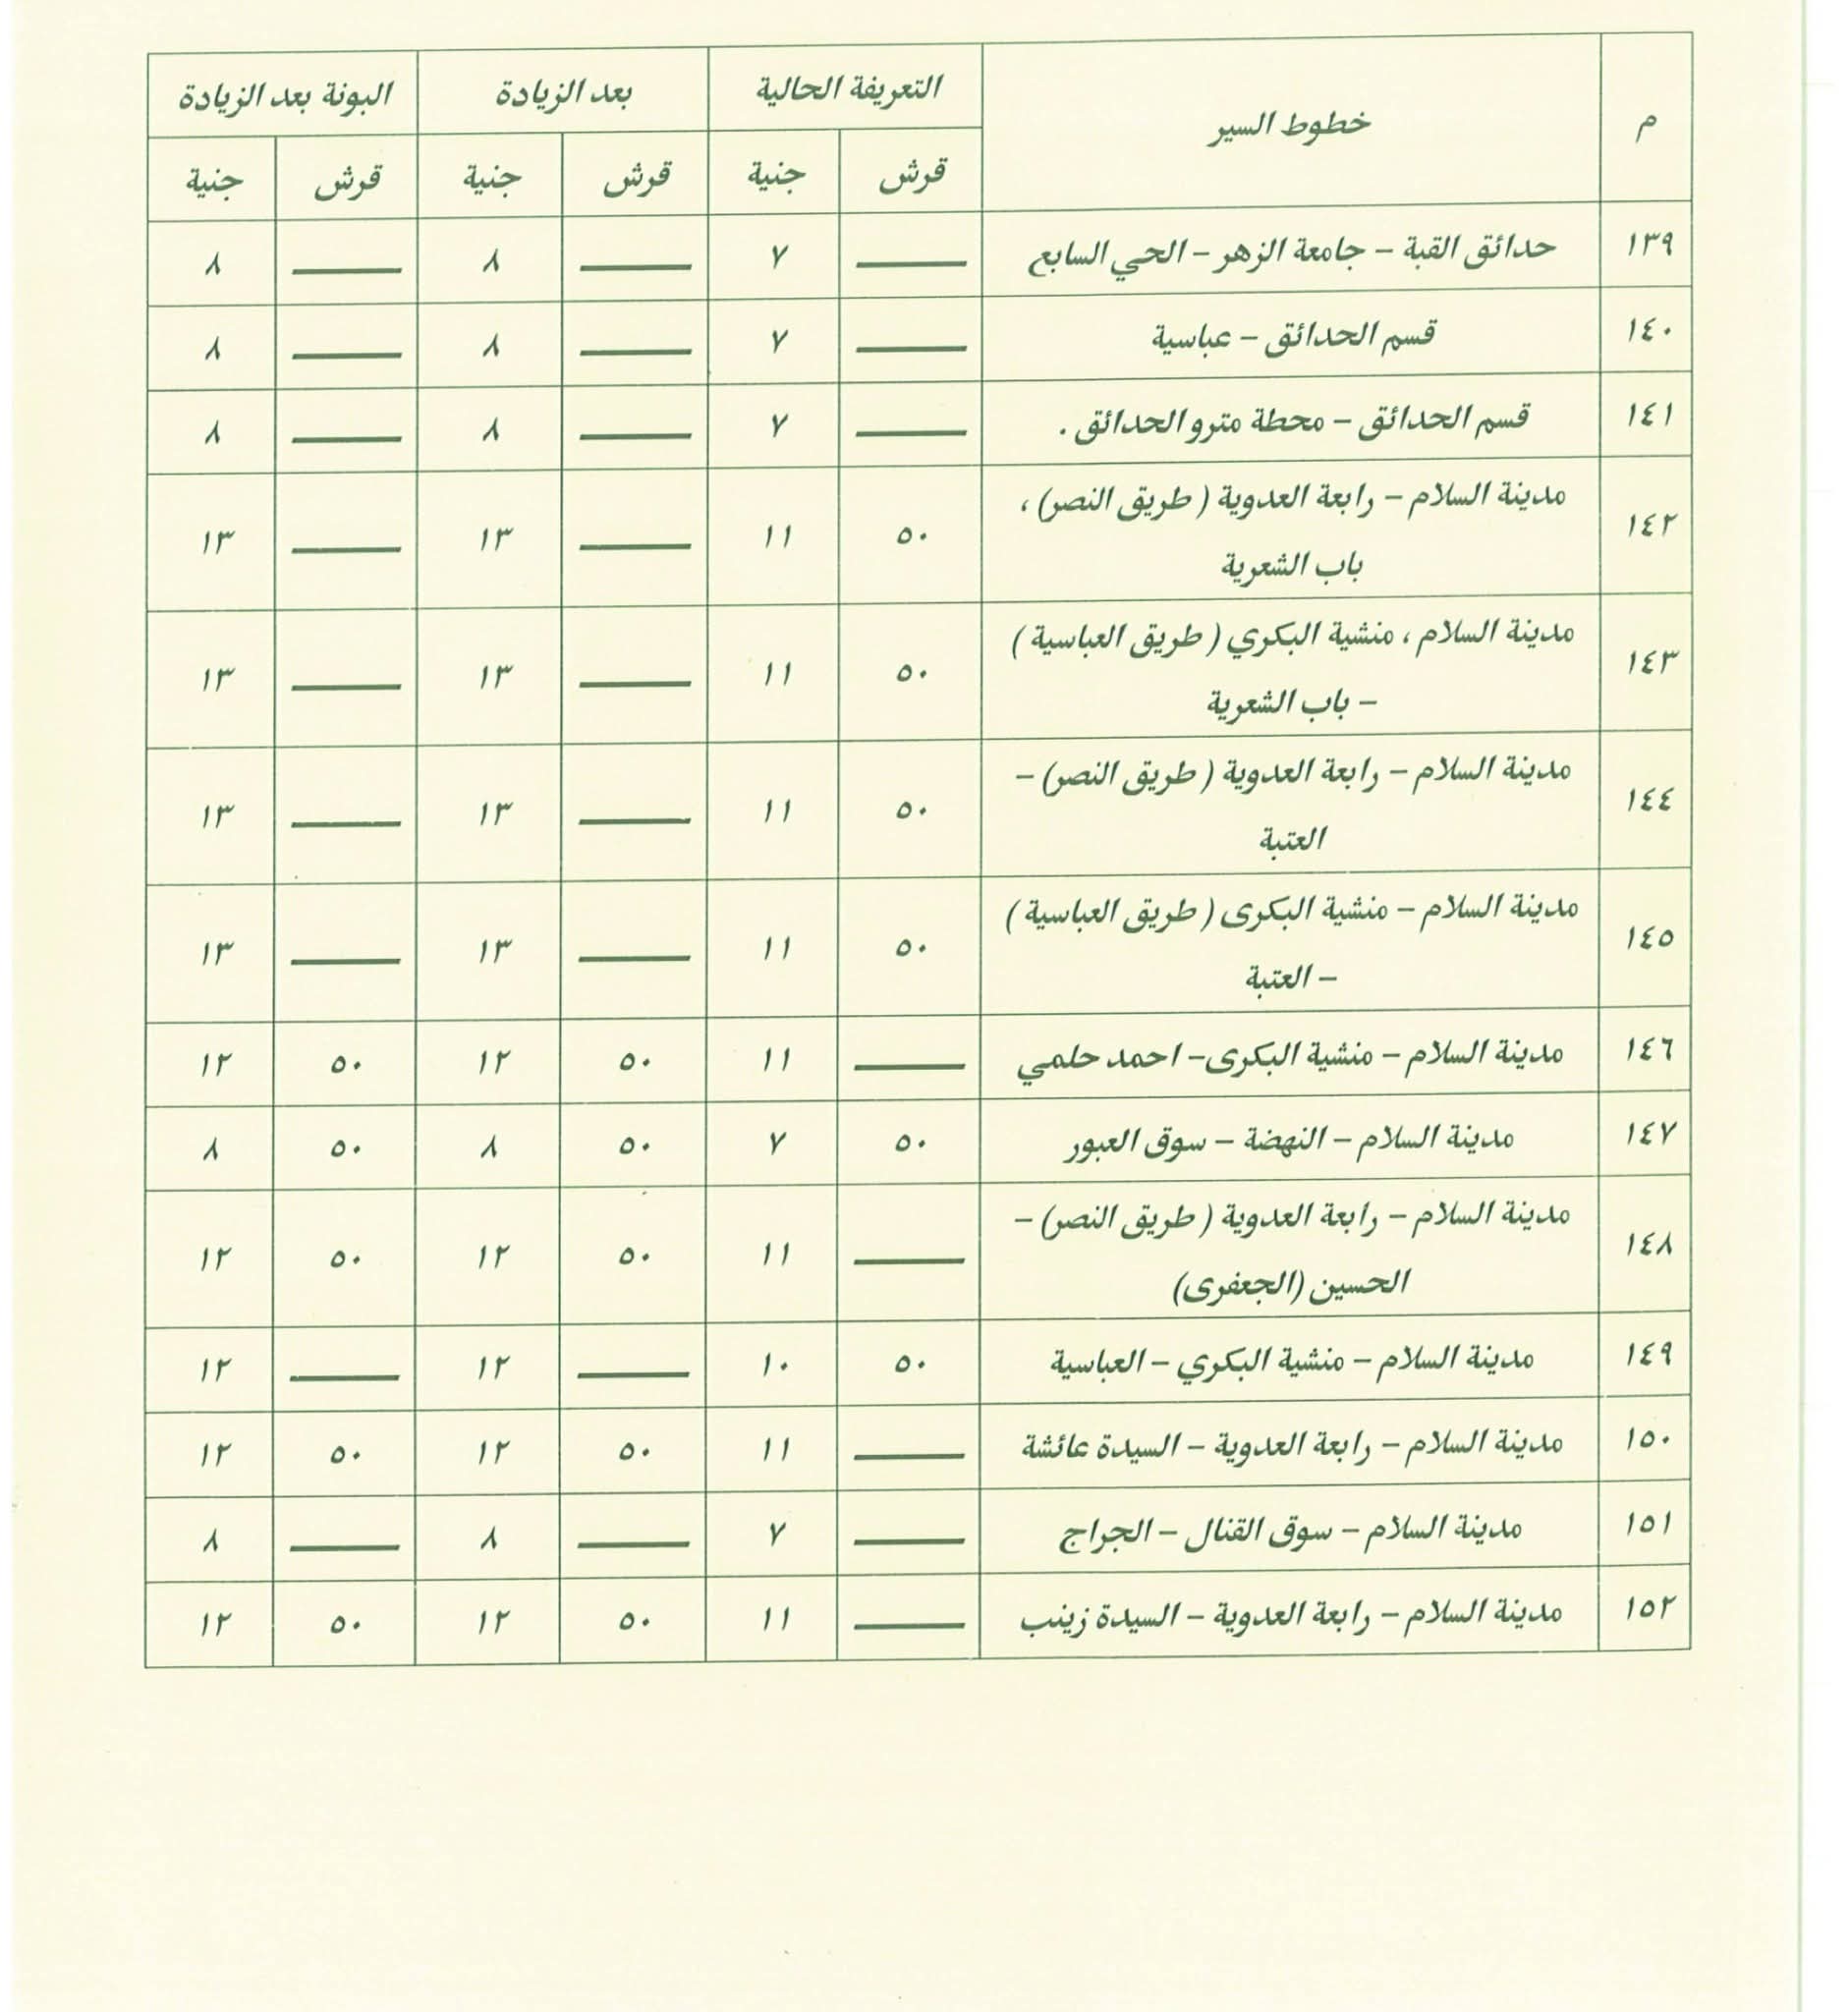 م خطوط السير التعريفة الحالية بعد الزيادة البونة بعد الزيادة
قرش جنية قرش جنية قرش جنية
١٣٩ حدائق القبة – جامعة الزهر – الحي السابع —— ٧ —— ٨ —— ٨
١٤٠ قسم الحدائق – عباسية —— ٧ —— ٨ —— ٨
١٤١ قسم الحدائق – محطة مترو الحدائق . —— ٧ —— ٨ —— ٨
١٤٢ مدينة السلام – رابعة العدوية ( طريق النصر) ،
باب الشعرية ٥٠ ١١ —— ١٣ —— ١٣
١٤٣ مدينة السلام ، منشية البكري ( طريق العباسية )
– باب الشعرية ٥٠ ١١ —— ١٣ —— ١٣
١٤٤ مدينة السلام – رابعة العدوية ( طريق النصر) –
العتبة ٥٠ ١١ —— ١٣ —— ١٣
١٤٥ مدينة السلام – منشية البكرى ( طريق العباسية )
– العتبة ٥٠ ١١ —— ١٣ —— ١٣
١٤٦ مدينة السلام – منشية البكرى– احمد حلمي —— ١١ ٥٠ ١٢ ٥٠ ١٢
١٤٧ مدينة السلام – النهضة – سوق العبور ٥٠ ٧ ٥٠ ٨ ٥٠ ٨
١٤٨ مدينة السلام – رابعة العدوية ( طريق النصر) –
الحسين (الجعفرى) —— ١١ ٥٠ ١٢ ٥٠ ١٢
١٤٩ مدينة السلام – منشية البكري – العباسية ٥٠ ١٠ —— ١٢ —— ١٢
١٥٠ مدينة السلام – رابعة العدوية – السيدة عائشة —— ١١ ٥٠ ١٢ ٥٠ ١٢
١٥١ مدينة السلام – سوق القنال – الجراج —— ٧ —— ٨ —— ٨
١٥٢ مدينة السلام – رابعة العدوية – السيدة زينب —— ١١ ٥٠ ١٢ ٥٠ ١٢